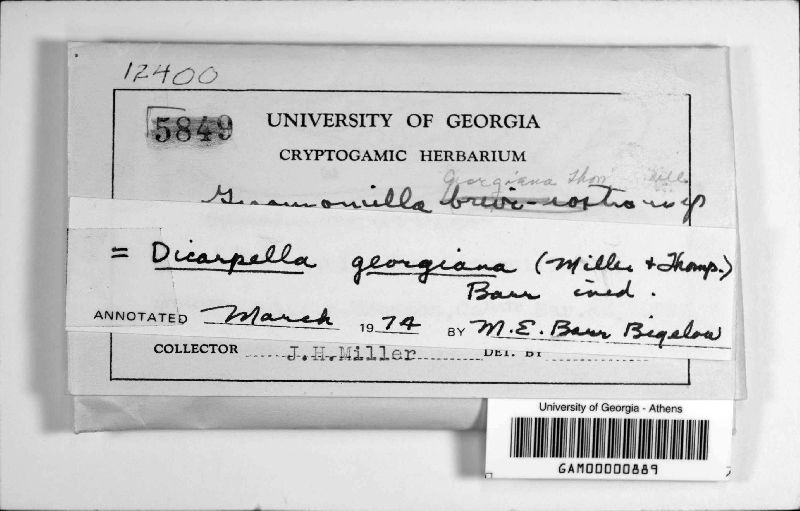 12400
5849
UNIVERSITY OF GEORGIA
CRYPTOGAMIC HERBARIUM
georgiana Thom Mill
Gnomoniella brevi-rostra
= Dicarpella georgiana (Miller + Thomp.)
Barr ined.
ANNOTATED March 1974 BY M.E. Barr Bigelow
COLLECTOR J.H.Miller DET. BY
University of Georgia - Athens
GAM00000889